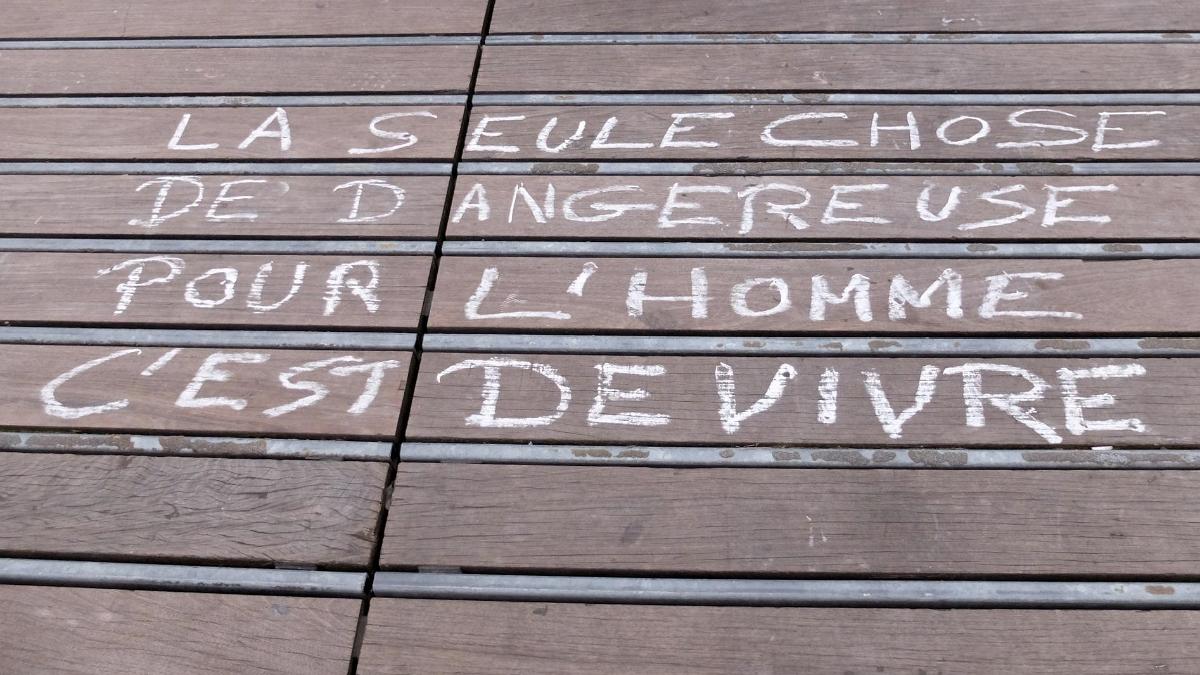 LA SEULE CHOSE
DE DANGEREUSE
POUR L'HOMME
C'EST DE VIVRE